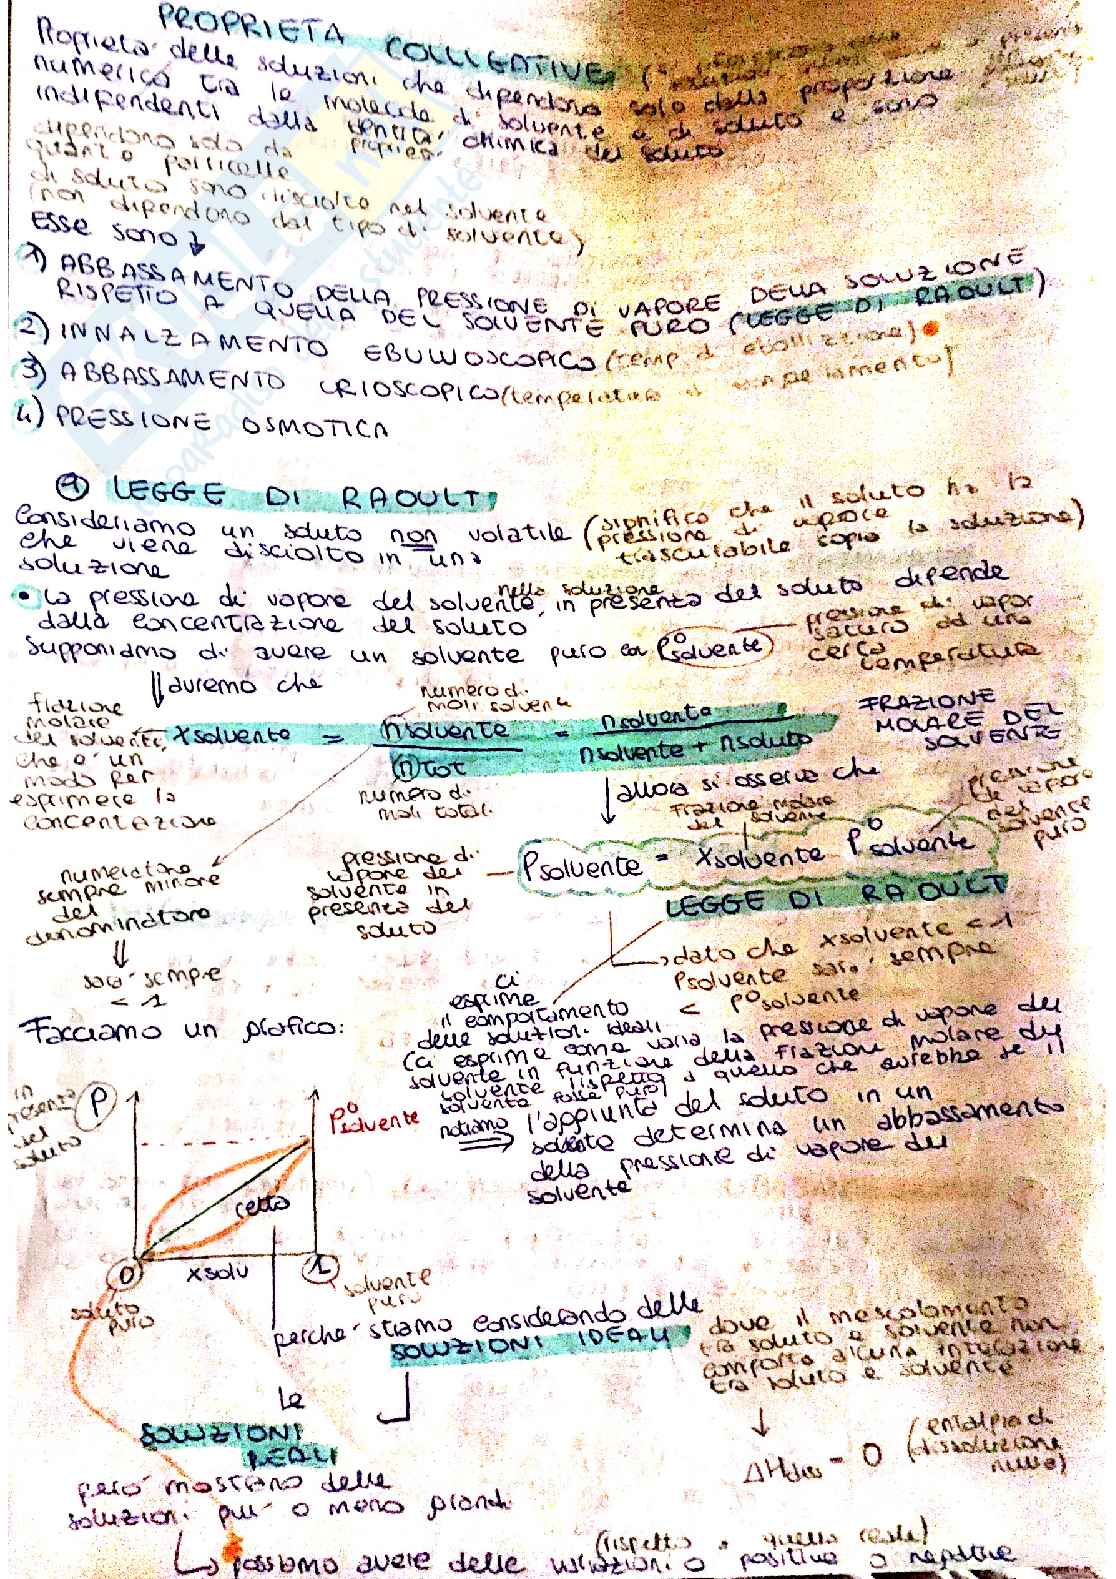 PROPRIETA COLLIGATIVE
Proprietà delle soluzioni che dipendono solo dalla proporzione
numerica tra le molecole di solvente e di soluto e sono
indipendenti dalla identità chimica del soluto
dipendono solo da
quante particelle
di soluto sono disciolte nel solvente
(non dipendono dal tipo di solvente)
Esse sono
1) ABBASSAMENTO DELLA PRESSIONE DI VAPORE DELLA SOLUZIONE
RISPETTO A QUELLA DEL SOLVENTE PURO (LEGGE DI RAOULT)
2) INNALZAMENTO EBULLIOSCOPICO (temp di ebollizione)
3) ABBASSAMENTO CRIOSCOPICO (temperatura di congelamento)
4) PRESSIONE OSMOTICA
① LEGGE DI RAOULT
Consideriamo un soluto non volatile (significa che il soluto ha la
pressione di vapore
trascurabile sopra la soluzione)
che viene disciolto in una
soluzione
• La pressione di vapore del solvente, nella soluzione, in presenza del soluto dipende
dalla concentrazione del soluto
Supponiamo di avere un solvente puro con P°solvente)
pressione di vapor
saturo ad una
certa
temperatura
avremo che
frazione
molare
del solvente,
che è un
modo per
esprimere la
concentrazione
numero di
moli solvente
xsolvente = nsolvente / ntot = nsolvente / nsolvente + nsoluto
numero di
moli totali
FRAZIONE
MOLARE DEL
SOLVENTE
allora si osserva che
numeratore
sempre minore
del
denominatore
sarà sempre
< 1
pressione di
vapore del
solvente in
presenza del
soluto
Frazione molare
del solvente
Psolvente = xsolvente P°solvente
pressione
di vapore
del
solvente
puro
LEGGE DI RAOULT
dato che xsolvente < 1
Psolvente sarà sempre
< P°solvente
ci
esprime
il comportamento
delle soluzioni ideali
(ci esprime come varia la pressione di vapore del
solvente in funzione della frazione molare del
solvente rispetto a quella che avrebbe se il
solvente fosse puro)
notiamo l'aggiunta del soluto in un
solvente determina un abbassamento
della pressione di vapore del
solvente
Facciamo un grafico:
in
presenza
del
soluto
P
P°solvente
retta
0
xsolv
1
soluto
puro
solvente
puro
perche' stiamo considerando delle
SOLUZIONI IDEALI
dove il mescolamento
tra soluto e solvente non
comporta alcuna interazione
tra soluto e solvente
ΔHdiss = 0 (entalpia di
dissoluzione
nulla)
Le
SOLUZIONI
REALI
però mostrano delle
soluzioni piu' o meno grandi
(rispetto a quella reale)
possiamo avere delle variazioni o positive o negative